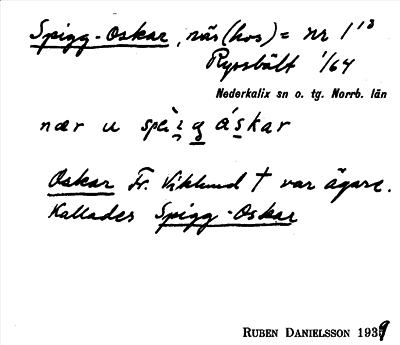 Spigg-Oskar, när (hos) = nr 1¹³
Ryssbält 1/64
Nederkalix sn o. tg. Norrb. län
nær u spìg áskar
Oskar Fr. Viklund † var ägare.
Kallades Spigg-Oskar
RUBEN DANIELSSON 1939